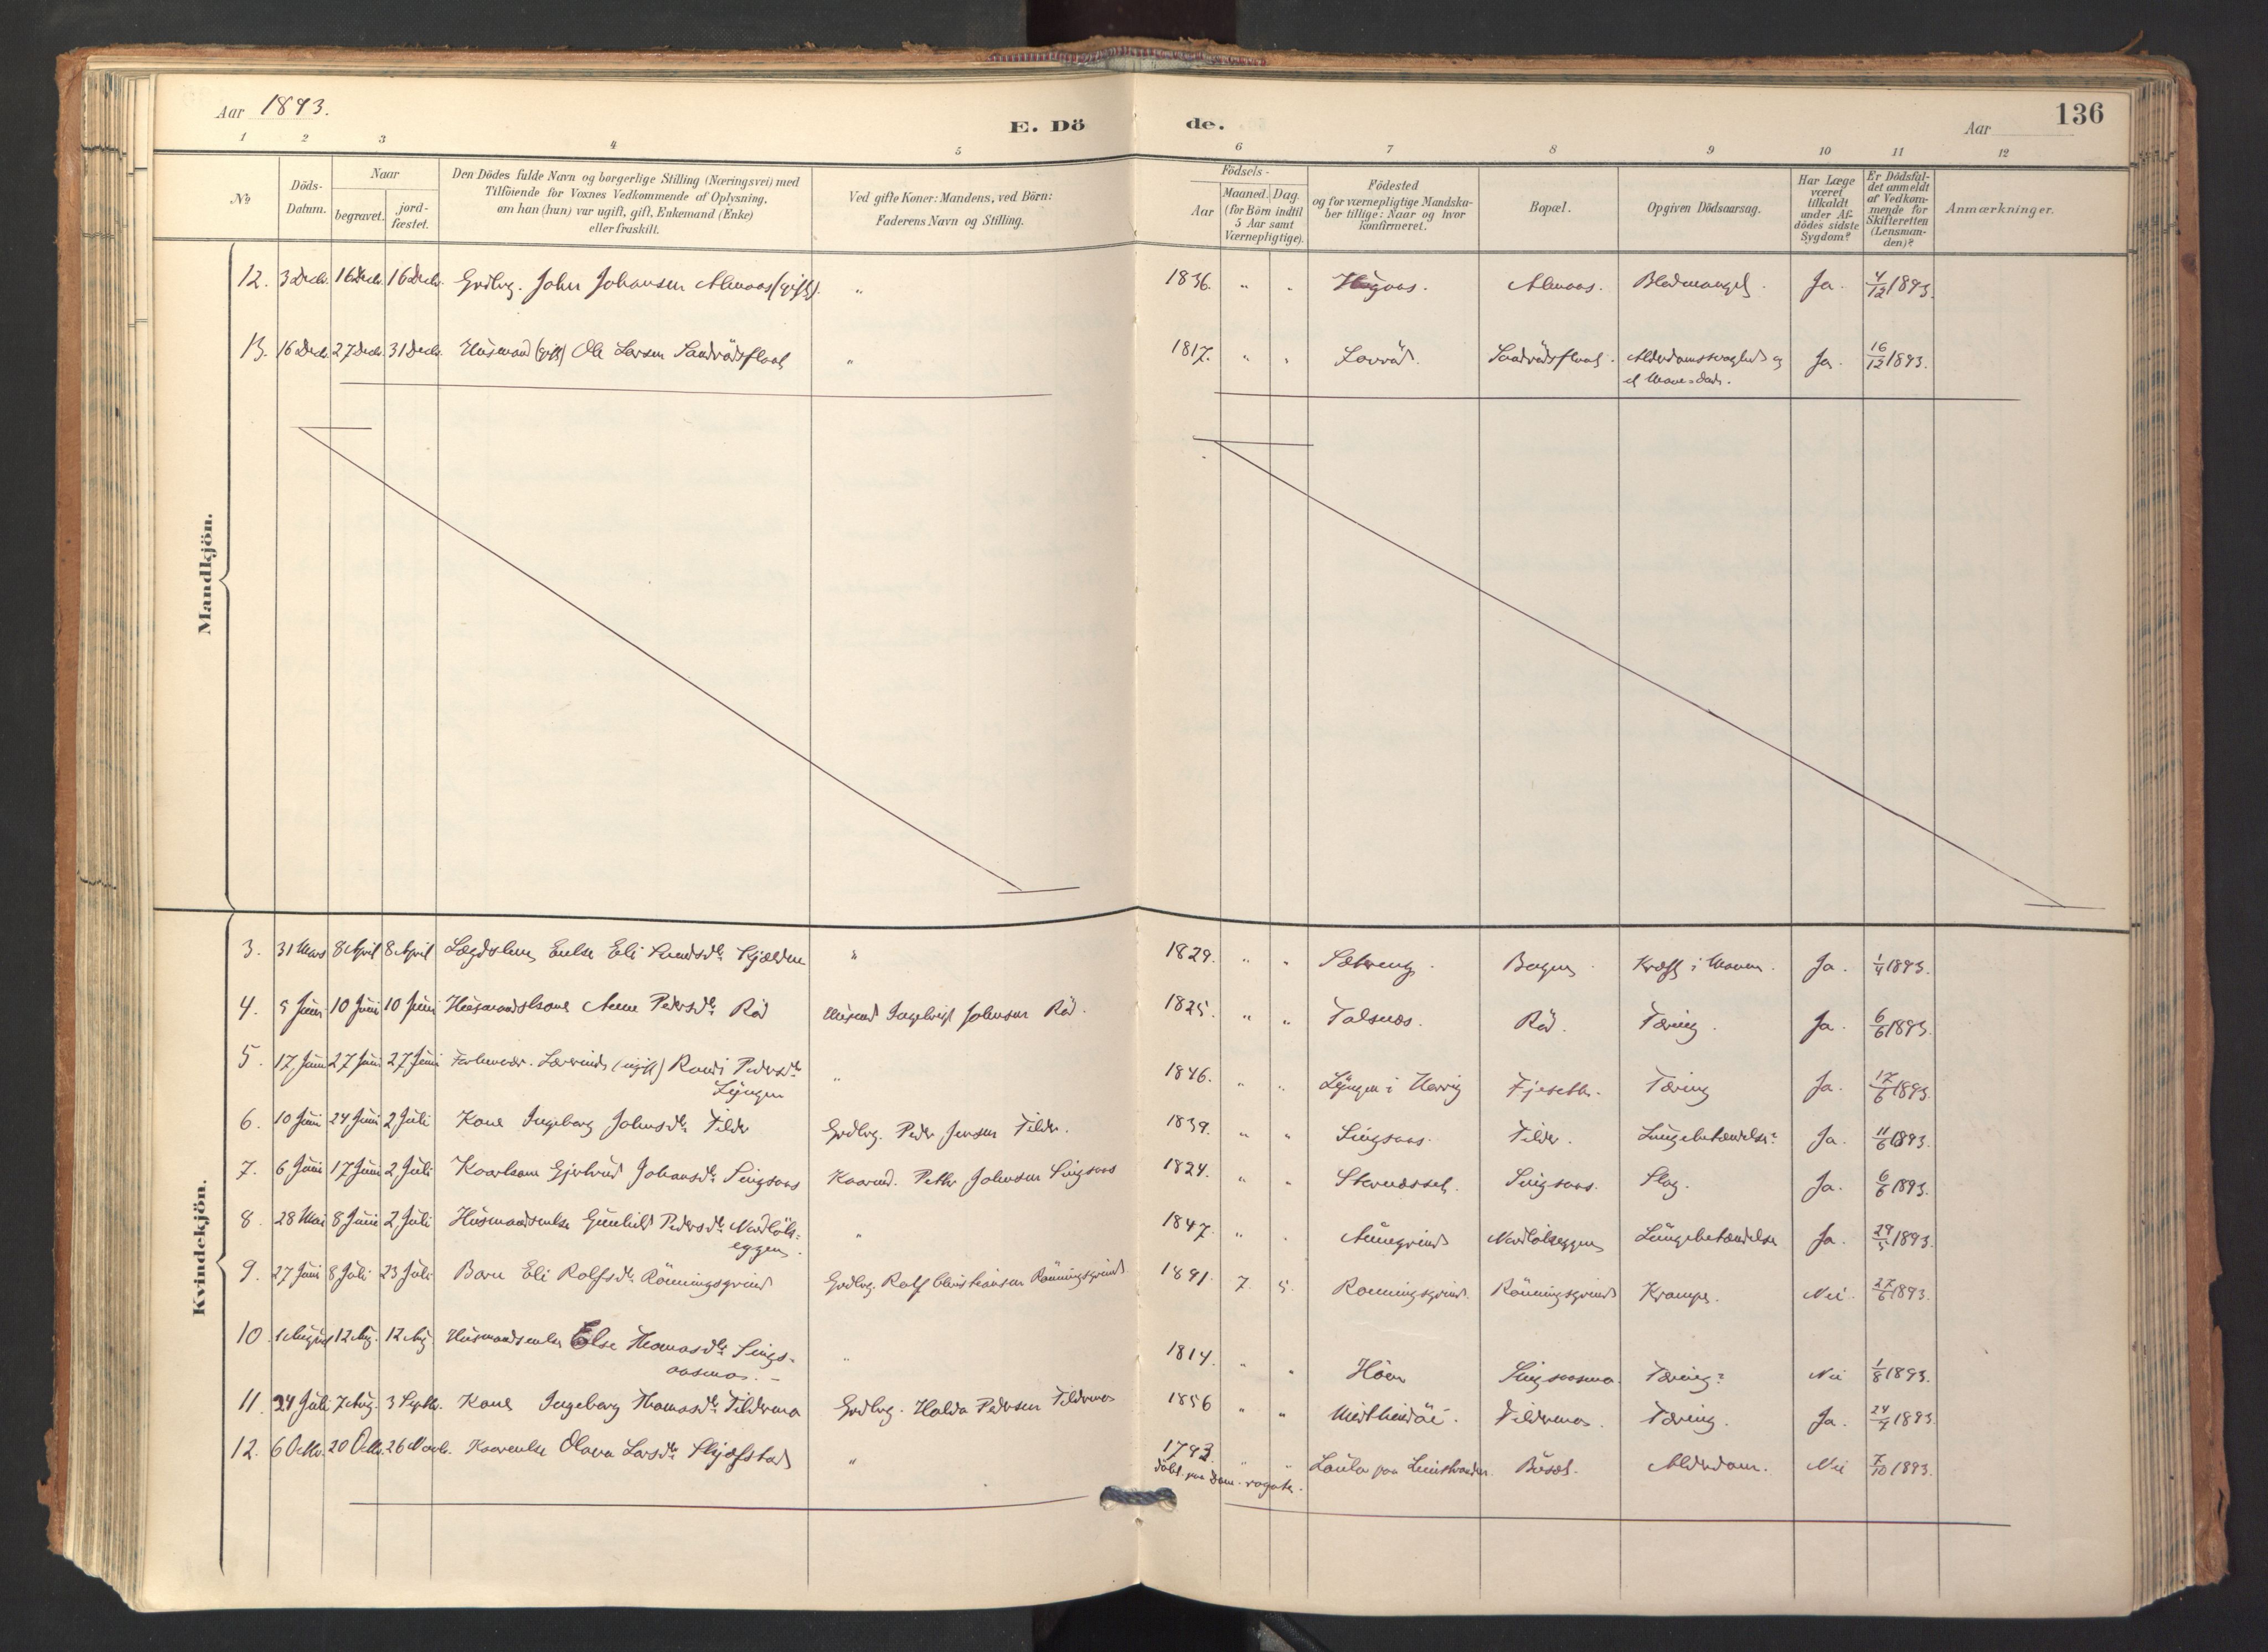 Aar 1893.
E. Dö
de.
Aar
136
1 2 3 4 5 6 7 8 9 10 11 12
№
Döds-
Datum.
Naar
begravet.
jord-
fæstet.
Den Dödes fulde Navn og borgerlige Stilling (Næringsvei) med
Tilföiende for Voxnes Vedkommende af Oplysning,
om han (hun) var ugift, gift, Enkemand (Enke)
eller fraskilt.
Ved gifte Koner: Mandens, ved Börn:
Faderens Navn og Stilling.
Födsels-
Aar
Maaned. Dag.
(for Börn indtil
5 Aar samt
Værnepligtige).
Födested
og for værnepligtige Mandska-
ber tillige: Naar og hvor
konfirmeret.
Bopæl.
Opgiven Dödsaarsag.
Har Læge
været
tilkaldt
under Af-
dödes sidste
Sygdom?
Er Dödsfal-
det anmeldt
af Vedkom-
mende for
Skifteretten
(Lensman-
den)?
Anmærkninger.
Mandkjön.
12. 3 Decb. 16 Decb. 16 Decb. Grdbrg. John Johansen Almaas (gift). " 1836. " " Almaas. Blodmangel. Ja. 4/12 1893.
13. 16 Decb. 27 Decb. 31 Decb. Husmand (gift) Ole Larsen Sandrödsflaat " 1817. " " Sandrödsflaat. Alderdomssvaghed og Ja. 16/12 1893.
Kvindekjön.
3. 31 Mars 8 April 8 April Enke Eli Kjælden " 1829. " " Sætreng. Bogen. Kræft i Maven. Ja. 1/4 1893.
4. 5 Juni 10 Juni 10 Juni Husmandskone Anne Pedersdtr Röd Husmd Ingebrigt Johnsen Röd. 1825. " " Talsnes. Röd. Tæring. Ja. 6/6 1893.
5. 17 Juni 27 Juni 27 Juni Lærerinde (ugift) Randi Pedersdtr " 1846. " " Lyngen i Tæring Ja. 17/6 1893.
Lyngen
6. 10 Juni 24 Juni 2 Juli Kone Ingeborg Johnsdtr Tilder Grdbrg. Peder Jensen Tilder. 1839. " " Singsaas. Tilder. Lungebetændelse Ja. 11/6 1893.
7. 6 Juni 17 Juni 2 Juli Gjertrud Johansdtr Singsaas Petter Johnsen Singsaas 1824. " " Singsaas. Slag. Ja. 6/6 1893.
8. 28 Mai 8 Juni 2 Juli Husmandsenke Gunhild Pedersdtr Nordlök- " 1847. " " Nordlökeggen Lungebetændelse Ja. 29/5 1893.
eggen.
9. 27 Juni 8 Juli 23 Juli Barn Eli Rolfsdtr Rönningsgrind Grdbrg. Rolf Christiansen Rönningsgrind 1891. 7. 5. Rönningsgrind. Rönningsgrind Krampe. Nei. 27/6 1893.
10. 1 August 12 Aug. 12 Aug Husmandsenke Else Thomasdtr Sings- " 1814. " " Singsaasmo. Tæring? Nei 1/8 1893.
aasmo. -
11. 24 Juli 7 Aug. 3 Septbr. Kone Ingeborg Thomasdtr Tildermo Grdbrg. Haldo Pedersen Tildermo 1856 " " Tildermo. Tæring. Ja. 24/7 1893
12. 6 Octbr. 20 Octbr. 26 Novb. Olava Larsdtr " 1793. " " Alderdom. Nei 7/10 1893.